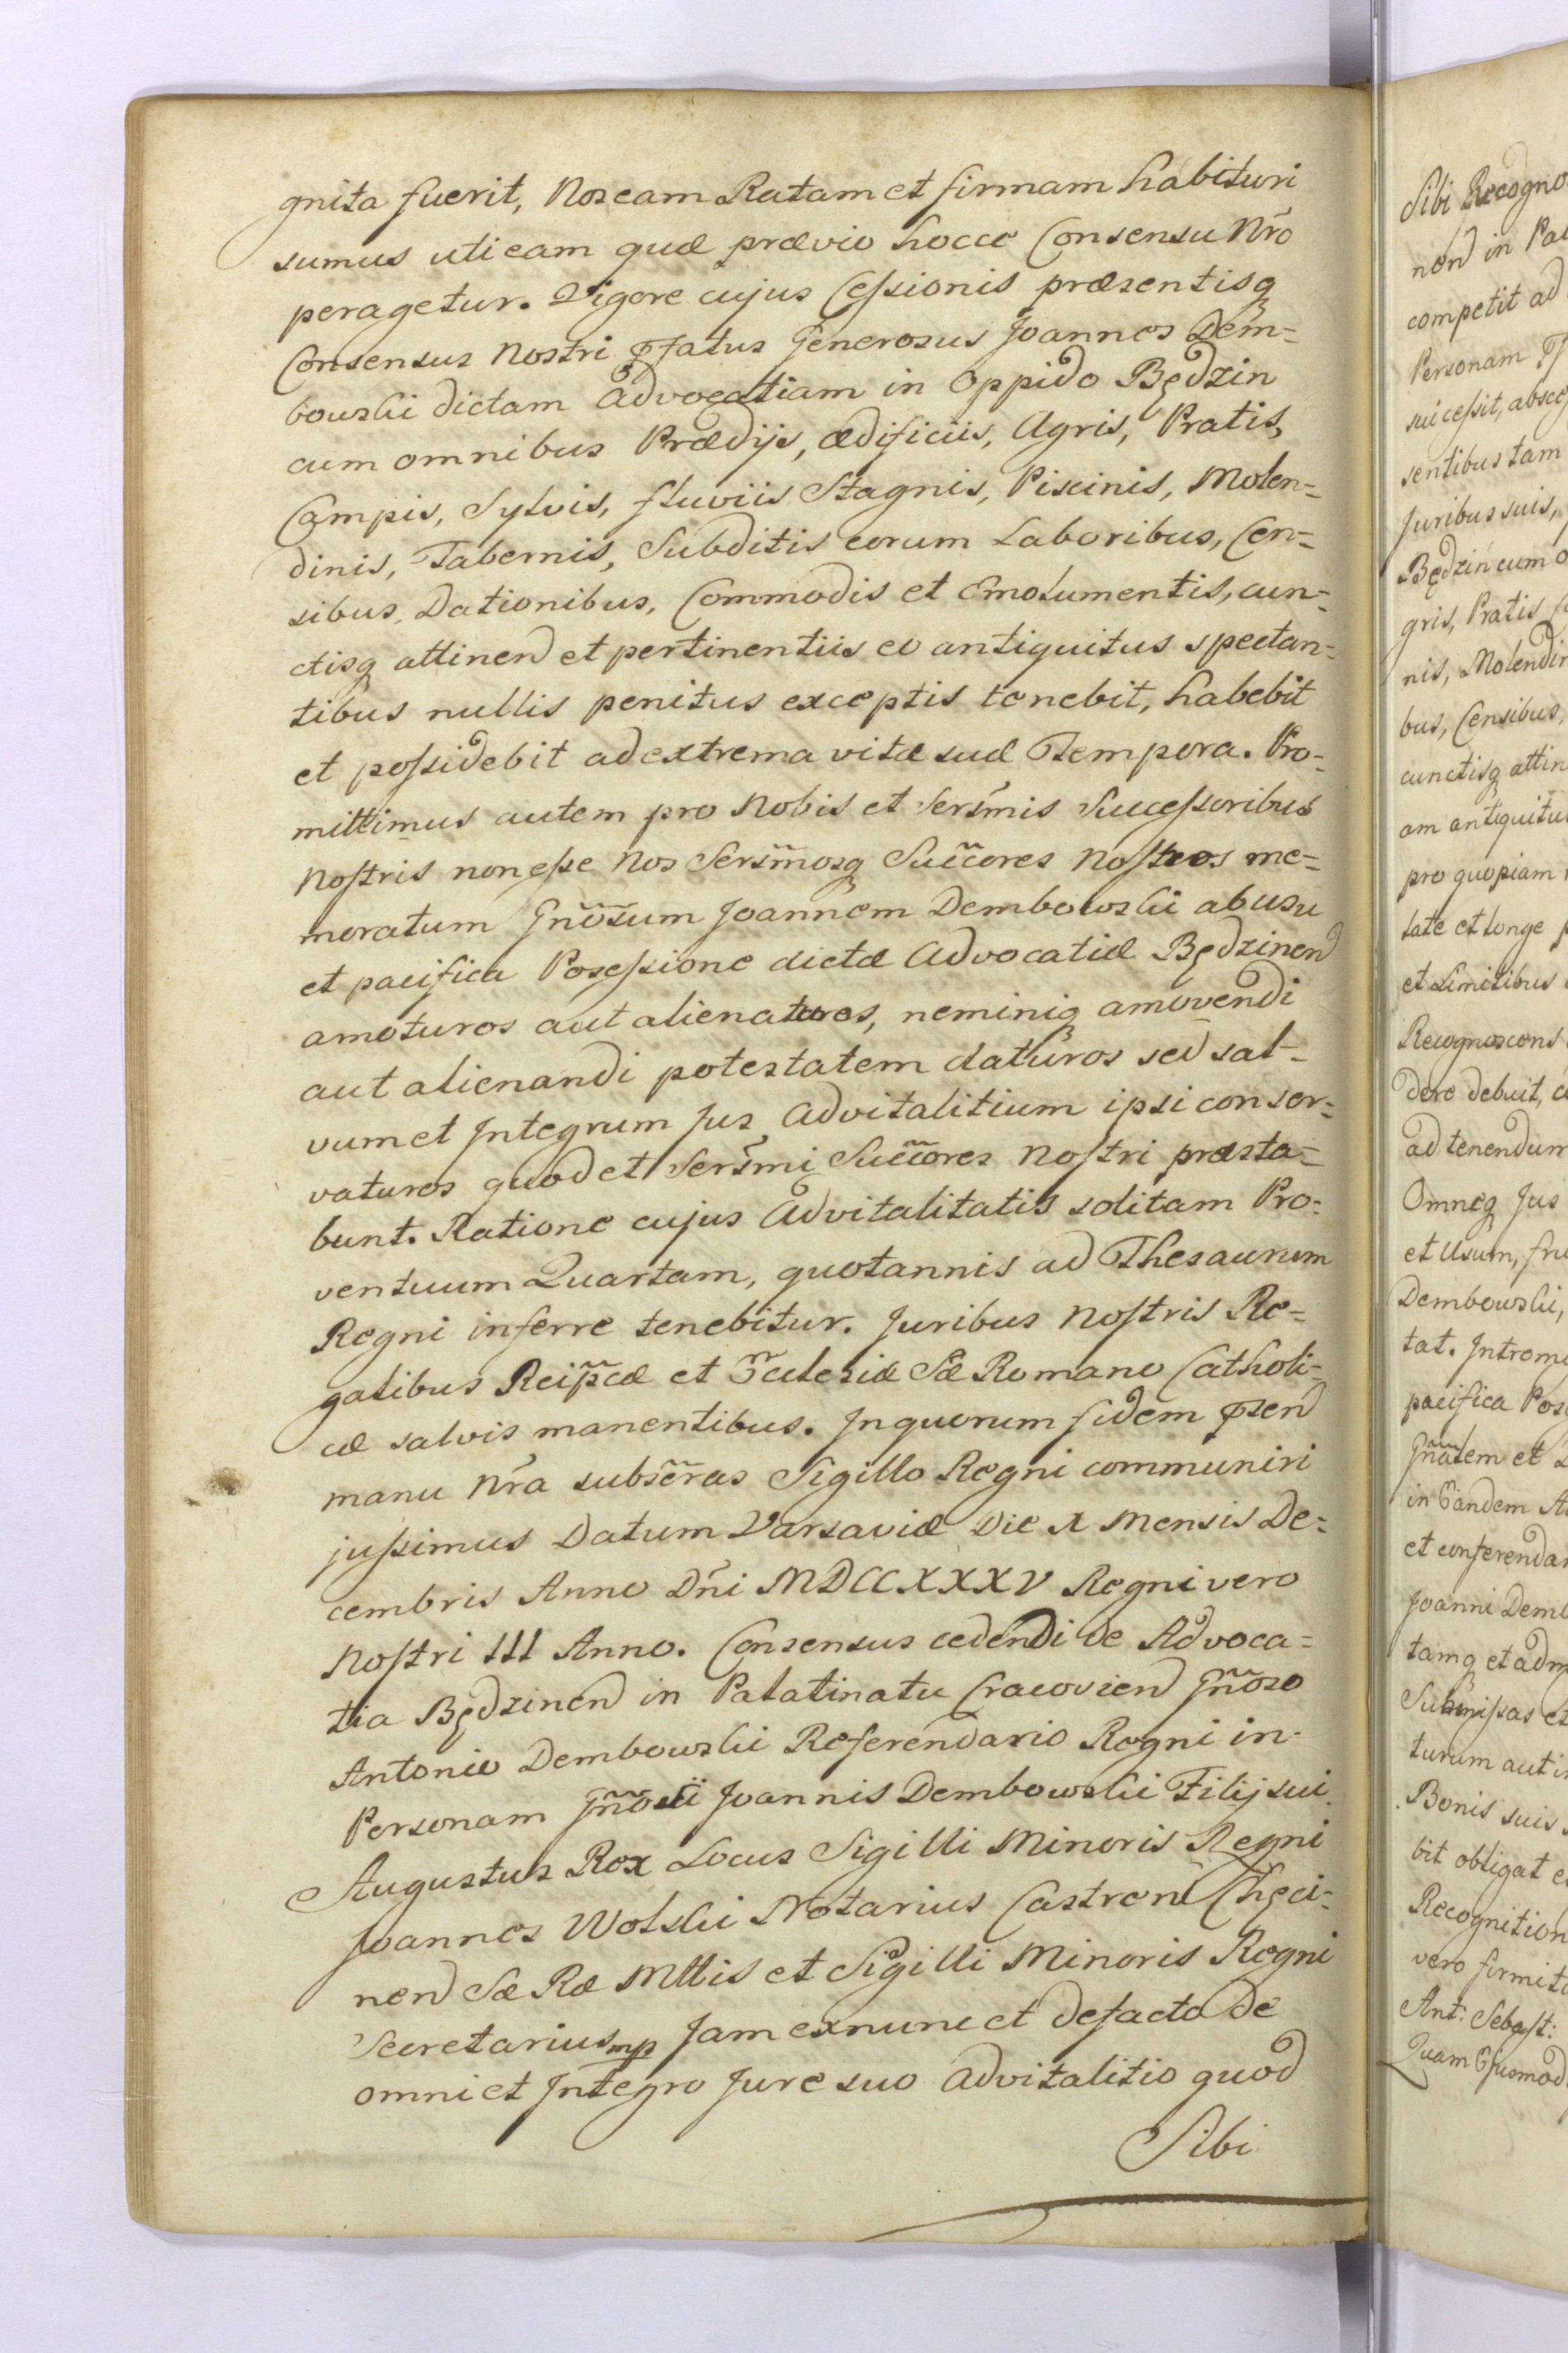 gnita fuerit, Nos eam Ratam et firmam habituri
sumus uti eam quæ prævio hocce Consensu Nr̃o
peragetur. Vigore cujus Cessionis præsentisq
Consensus Nostri pfatus Generosus Joannes Dem=
bowski dictam Advocatiam in Oppido Będzin
cum omnibus Prædijs, ædificiis, Agris, Pratis,
Campis, Sylvis, fluviis Stagnis, Piscinis, Molen=
dinis, Tabernis, Subditis eorum Laboribus, Cen=
sibus, Dationibus, Commodis et Emolumentis, cun=
ctisq attinen et pertinentiis eo antiquitus spectan=
tibus nullis penitus exceptis tenebit, habebit
et possidebit ad extrema vitæ suæ Tempora. Pro=
mittimus autem pro Nobis et Serm̃is Successoribus
Nostris non esse Nos Serm̃osq Succ̃ores Nostros me=
moratum Gñosum Joannem Dembowski ab usu
et pacifica Posessione dictæ Advocatiæ Będzinen
amoturos aut alienaturos, neminiq amovendi
aut alienandi potestatem daturos sed sal=
vum et Integrum Jus Advitalitium ipsi conser=
vaturos quod et Serm̃i Succ̃ores Nostri præsta=
bunt. Ratione cujus Advitalitatis solitam Pro=
ventuum Quartam, quotannis ad Thesaurum
Regni inferre tenebitur. Juribus Nostris Re=
galibus Reip̃cæ et Ecclesiæ Sæ Romano Catholi=
cæ salvis manentibus. In quorum fidem psen
manu Nr̃a subscr̃as Sigillo Regni communiri
jussimus Datum Varsaviæ Die X Mensis De=
cembris Anno Dñi MDCCXXXV Regni vero
Nostri III Anno. Consensus cedendi de Advoca=
tia Będzinen in Palatinatu Cracovien Gñoso
Antonio Dembowski Referendario Regni in
Personam Gñosi Joannis Dembowski Filij sui.
Augustus Rex Locus Sigilli Minoris Regni
Joannes Wolski Notarius Castren Chęci=
nen Sæ Ræ Mttis et Sigilli Minoris Regni
Secretarius mp Jam ex nunc et de facto de
omni et Integro Jure suo Advitalitio quod
Sibi
Sibi Recogno
nen in Pal
competit ad
Personam
successit, absces
sentibus tam
Juribus suis,
Będzin cum o
gris, Pratis
nis, Molendin
bus, Censibus,
cunctisq attin
am antiquitu
pro quopiam
late et longe p
et Limitibus
Recognoscens
dere debuit,
ad tenendum
Omneq Jus
et Usum, fru
Dembowski,
tat. Intromi
pacifica Pos
Gñalem et
in Eandem A
et conferendam
Joanni Demb
tamq et adm
Submissas et
turum aut i
Bonis suis
bit obligat e
Recognition
vero firmita
Ant: Sebast:
Quam Ejusmod